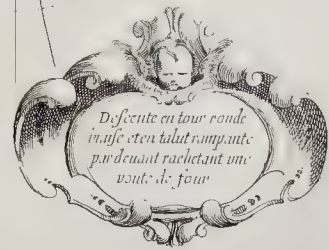 Descente en tour ronde
biaise et en talut rampante
par deuant rachetant une
voute de four